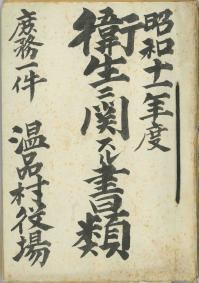 昭和十一年度
衛生ニ関スル書類
庶務一件
温品村役場